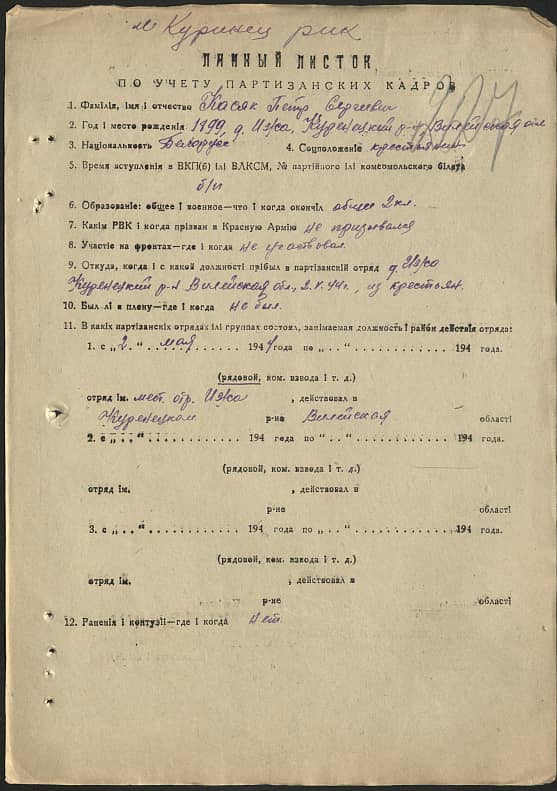 Куринец рик
ЛИЧНЫЙ ЛИСТОК
ПО УЧЕТУ ПАРТИЗАНСКИХ КАДРОВ
1. Фамілія, імя і отчество Касяк Петр Сергеевич
2. Год і место рожденія 1899, д. Ижа, Куренецкий р-н, Вилейская обл
3. Національность Беларус 4. Соцположеніе крестьянин
5. Время вступленія в ВКП(б) ілі ВЛКСМ, № партійного ілі комсомольского білета
б/п
6. Образованіе: общее і военное—что і когда окончіл общее 2 кл.
7. Какім РВК і когда прізван в Красную Армію не призывался
8. Участіе на фронтах—где і когда не участвовал
9. Откуда, когда і с какой должності прібыл в партізанскій отряд д. Ижа
Куренецкий р-н Вилейская обл., 2.V.44г., из крестьян.
10. Был лі в плену—где і когда не был.
11. В какіх партізанскіх отрядах ілі группах состоял, занімаемая должность і район действія отряда:
1. с „2.“ мая 1944 года по „..“ 194 года.
(рядовой, ком. взвода і т. д.)
отряд ім. мест. отр. Ижа , действовал в
Куренецком р-не Вилейская області
2. с „..“ 194 года по “..“ 194 года.
(рядовой, ком. взвода і т. д.)
отряд ім. , действовал в
р-не області
3. с „..“ 194 года по „..“ 194 года.
(рядовой, ком. взвода і т. д.)
отряд ім. , действовал в
р-не області
12. Раненія і контузіі—где і когда нет